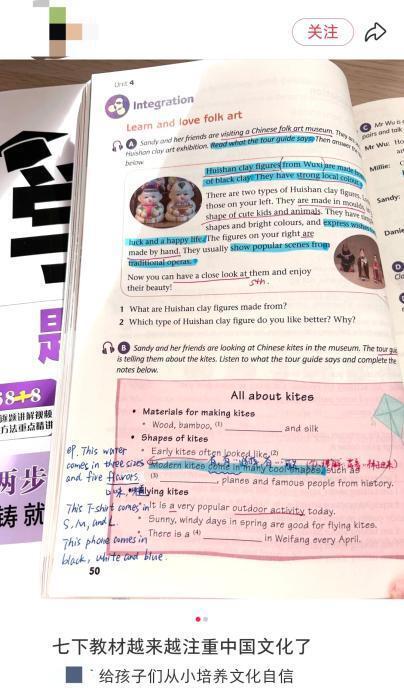 关注
Unit 4
Integration
Learn and love folk art
A Sandy and her friends are visiting a Chinese folk art museum. They
Huishan clay art exhibition. Read what the tour guide says. Then answer
below.
Huishan clay figures from Wuxi are made
of black clay. They have strong local colour
There are two types of Huishan clay figures.
those on your left. They are made in moulds
shape of cute kids and animals. They have
shapes and bright colours, and express wishes
luck and a happy life. The figures on your right are
made by hand. They usually show popular scenes from
traditional operas.
Now you can have a close look at them and enjoy
their beauty!
sth.
1 What are Huishan clay figures made from?
2 Which type of Huishan clay figure do you like better? Why?
B Sandy and her friends are looking at Chinese kites in the museum. The tour
is telling them about the kites. Listen to what the tour guide says and complete the
notes below.
All about kites
• Materials for making kites
• Wood, bamboo, (1) and silk
• Shapes of kites
• Early kites often looked like (2)
Modern kites come in many cool shapes, such as
(3) , planes and famous people from history.
Flying kites
It is a very popular outdoor activity today.
• Sunny, windy days in spring are good for flying kites.
• There is a (4) in Weifang every April.
eg. This water
comes in three sizes
and five flavors.
口味
This T-shirt comes in
S, M, and L.
This phone comes in
black, white and blue.
50
C Mr Wu is
pairs and talk
Mr Wu:
Millie:
Sandy:
Danie
D
58+8
方法重点精讲
两步
铸 就
七下教材越来越注重中国文化了
给孩子们从小培养文化自信